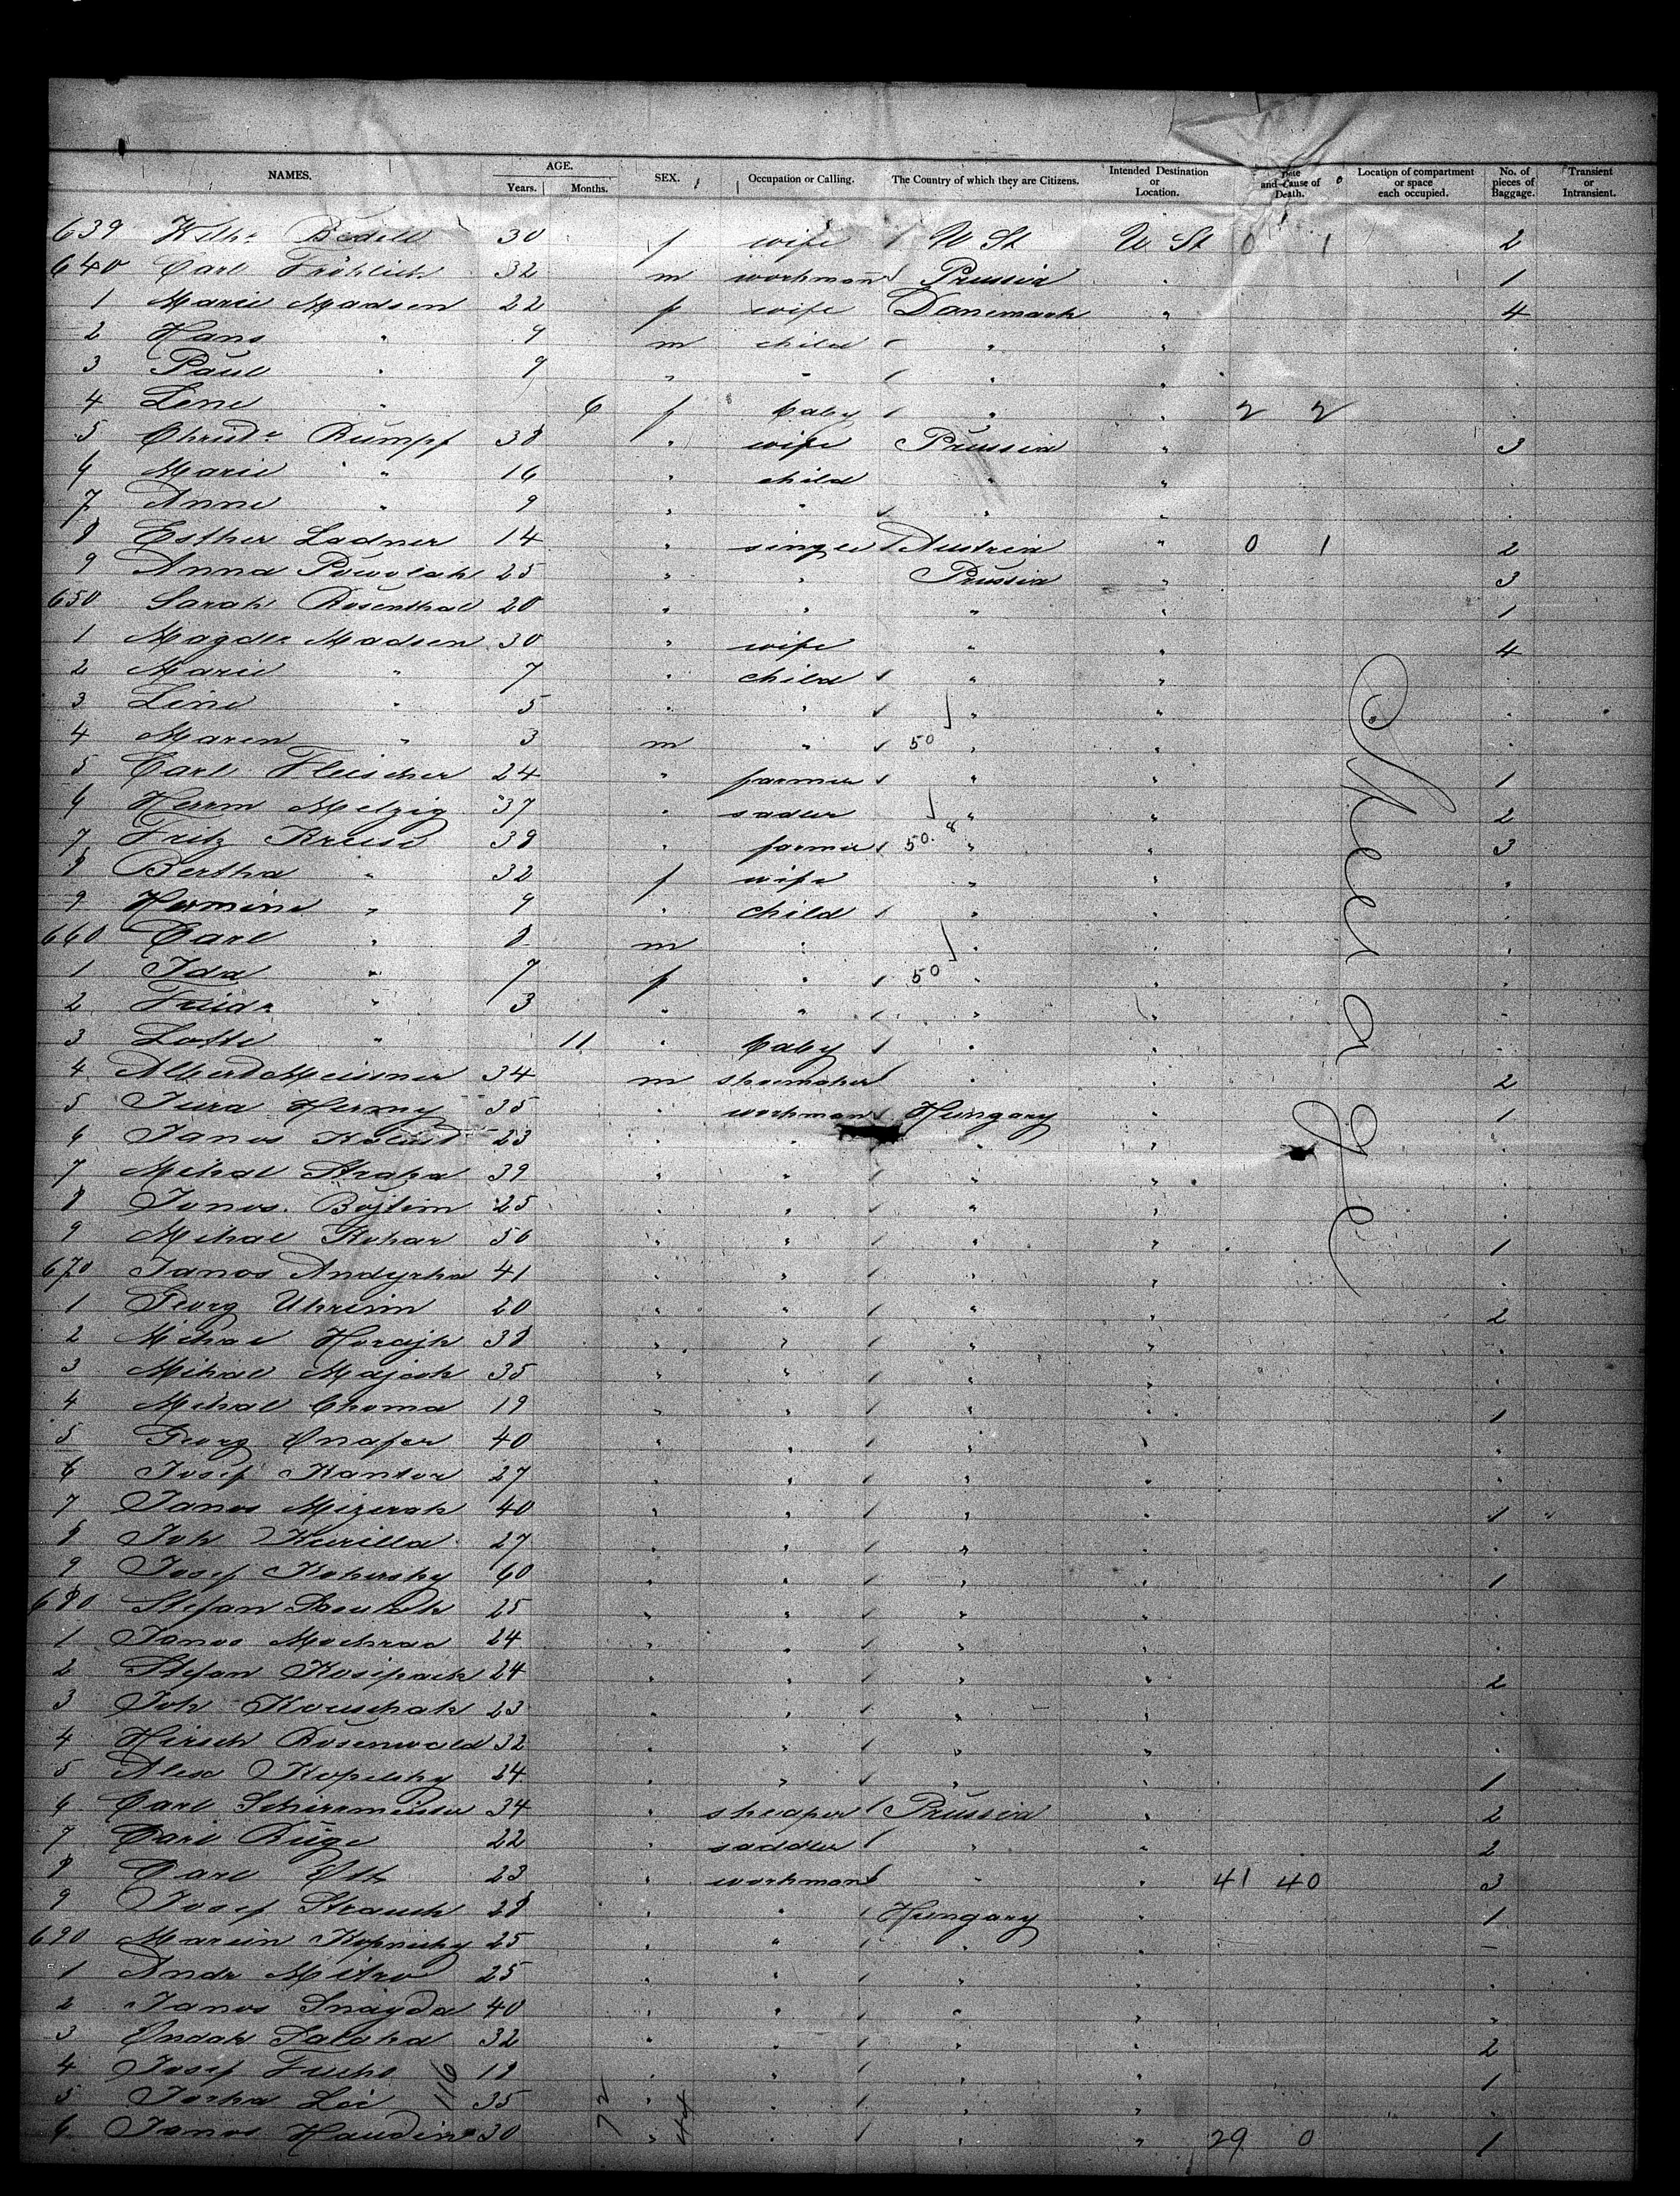 NAMES. AGE. Years. Months. SEX. Occupation or Calling. The Country of which they are Citizens. Intended Destination or Location. Date and Cause of Death. Location of compartment or space each occupied. No. of pieces of Baggage. Transient or Intransient.
639 Wilhe Bedell 30 f wife U St U St 0 1 2
640 Carl Fröhlich 32 m workman Prussia " 1
1 Marie Madsen 22 f wife Danemark " 4
2 Hans " 9 m child " "
3 Paul " 9 " " " "
4 Lene " 6 f baby " " 2 2
5 Chrude Rumpf 38 " wife Prussia " 3
6 Marie " 16 " child " "
7 Anne " 9 " " " "
8 Esther Ladner 14 " single Austria " 0 1 2
9 Anna Powolak 25 " " Prussia " 3
650 Sarah Rosenthal 20 " " " " 1
1 Magde Madsen 30 " wife " " 4
2 Marie " 7 " child " "
3 Line " 5 " " " "
4 Maren " 3 m " 50 " "
5 Carl Fleischer 24 " farmer " " 1
6 Herrm Melzig 37 " sadler " " 2
7 Fritz Kreise 38 " farmer 50. 8 " " 3
8 Bertha " 32 f wife " "
9 Hermine " 9 " child " "
660 Carl " 8 m " " "
1 Ida " 7 f " 50 " "
2 Friedr " 3 " " " "
3 Lotte " 11 " baby " "
4 Albert Meissner 34 m shoemaker " " 2
5 Jura Hermy 35 " workman Hungary " 1
6 Janos 23 " " " "
7 Mihal Straka 39 " " " "
8 Janos Bojtim 25 " " " "
9 Mihal Kohar 50 " " " " 1
670 Janos Andyrka 41 " " " "
1 Georg Uhreim 20 " " " " 2
2 Mihal Horajk 38 " " " "
3 Mihal Majcsk 35 " " " "
4 Mihal Choma 19 " " " " 1
5 Georg Onafer 40 " " " "
6 Josef Kantor 27 " " " "
7 Janos Mizerak 40 " " " " 1 "
8 Joh Kurilla 27 " " " "
9 Josef Kohersky 60 " " " " 1
680 Stefan 25 " " " "
1 Janos Mochnac 24 " " " "
2 Stefan Kosipach 24 " " " " 2
3 Joh Koruschak 23 " " " "
4 Hirsch Rosenwald 32 " " " "
5 Alex Kopelsky 24 " " " " 1
6 Carl Schirrmeister 34 " sheaper Prussia " 2
7 Carl Büge 22 " saddler " " 2
8 Carl Ott 23 " workman " " 41 40 3
9 Josef Strauch 28 " " Hungary " 1
690 Marcin Kopnicky 25 " " " " –
1 Andr Mitro 25 " " " "
2 Janos Snayda 40 " " " "
3 Ondak Salaka 32 " " " " 2
4 Josef Fuchs 18 " " " " 1
5 Jorka Loi 35 " " " "
6 Janos Haudin 30 " " " " 29 0 1
116 72 44
Steerage